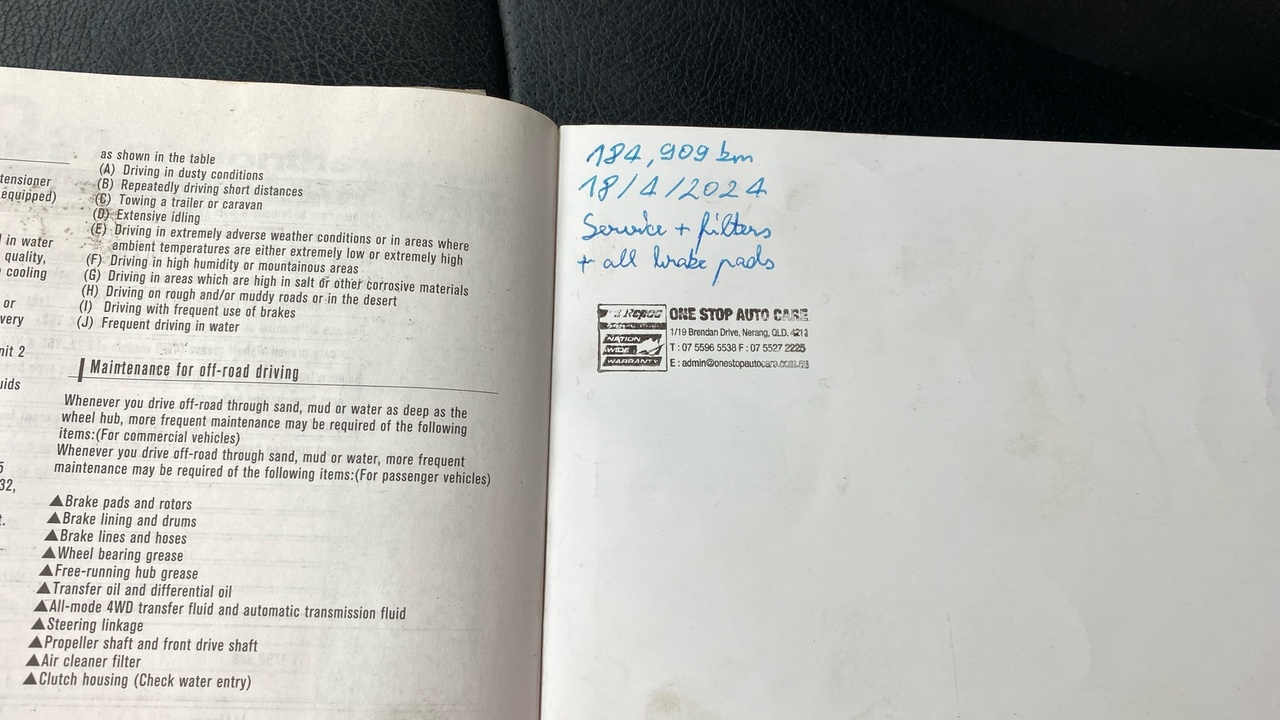 tensioner
equipped)
in water
quality,
cooling
or
very
nit 2
uids
5
32,
t.
as shown in the table
(A) Driving in dusty conditions
(B) Repeatedly driving short distances
(C) Towing a trailer or caravan
(D) Extensive idling
(E) Driving in extremely adverse weather conditions or in areas where
ambient temperatures are either extremely low or extremely high
(F) Driving in high humidity or mountainous areas
(G) Driving in areas which are high in salt or other corrosive materials
(H) Driving on rough and/or muddy roads or in the desert
(I) Driving with frequent use of brakes
(J) Frequent driving in water
Maintenance for off-road driving
Whenever you drive off-road through sand, mud or water as deep as the
wheel hub, more frequent maintenance may be required of the following
items:(For commercial vehicles)
Whenever you drive off-road through sand, mud or water, more frequent
maintenance may be required of the following items:(For passenger vehicles)
▲Brake pads and rotors
▲Brake lining and drums
▲Brake lines and hoses
▲Wheel bearing grease
▲Free-running hub grease
▲Transfer oil and differential oil
▲All-mode 4WD transfer fluid and automatic transmission fluid
▲Steering linkage
▲Propeller shaft and front drive shaft
▲Air cleaner filter
▲Clutch housing (Check water entry)
184,909 km
18/4/2024
Service + filters
+ all brake pads
Repco
NATION
WIDE
WARRANTY
ONE STOP AUTO CARE
1/19 Brendan Drive, Nerang, QLD. 4211
T : 07 5596 5538 F : 07 5527 2225
E : admin@onestopautocare.com.au